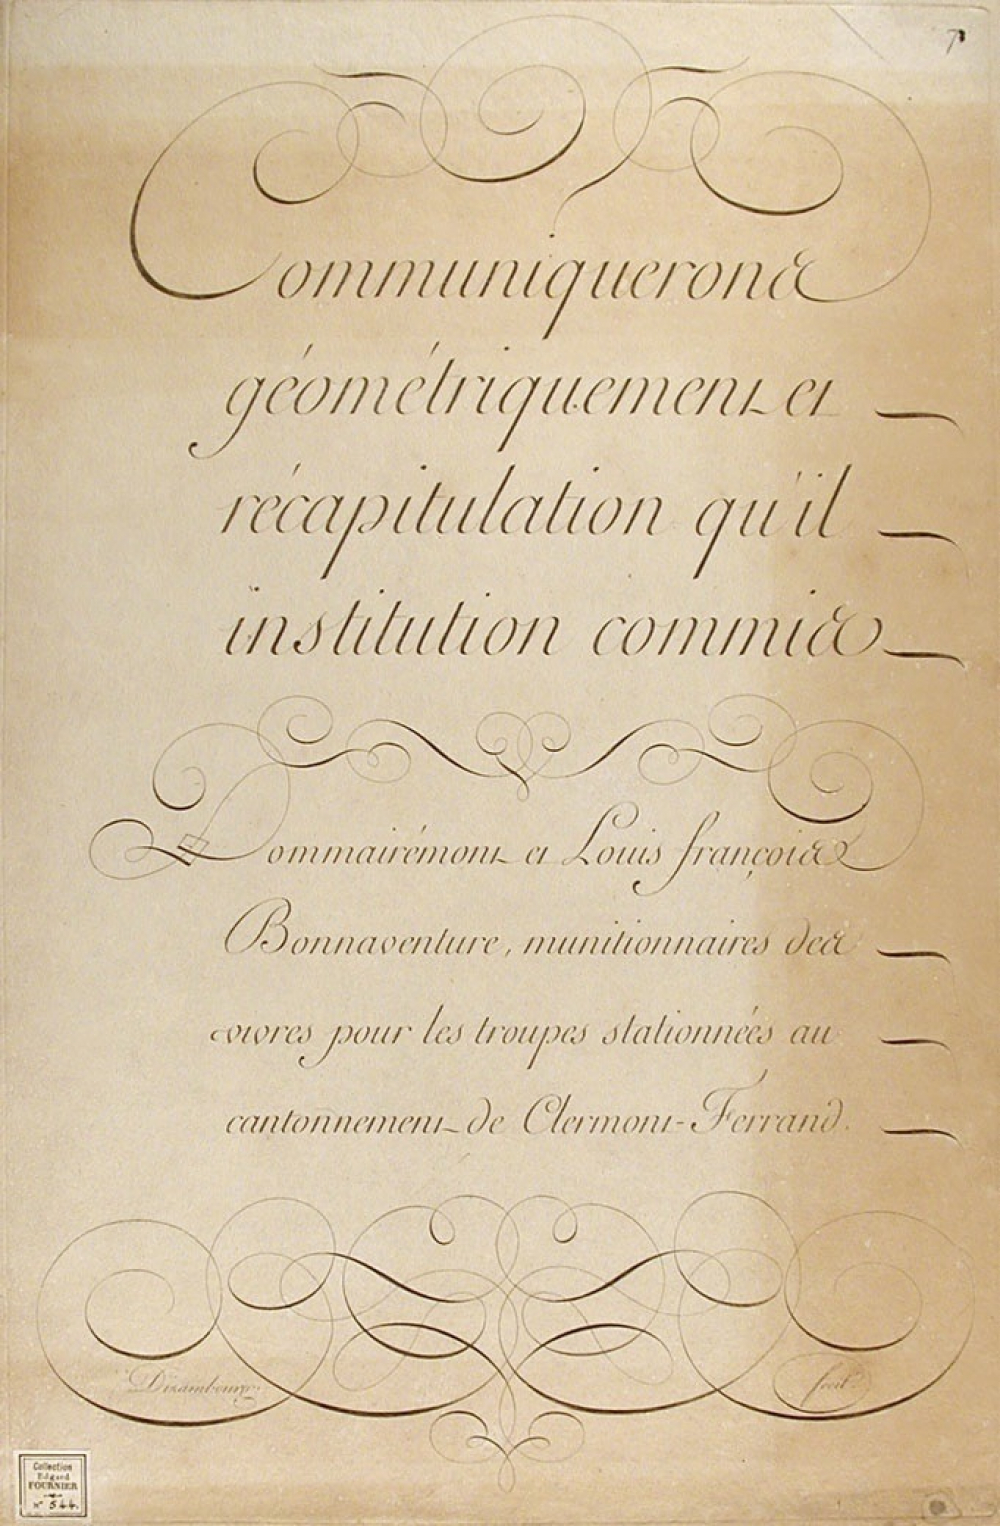 7
Communiquerons
géométriquement et
récapitulation qu'il
institution commis
Dommairémont et Louis françois
Bonnaventure, munitionnaires des
vivres pour les troupes stationnées au
cantonnement de Clermont-Ferrand.
fecit
Collection
Edgard
FOURNIER
N° 544.